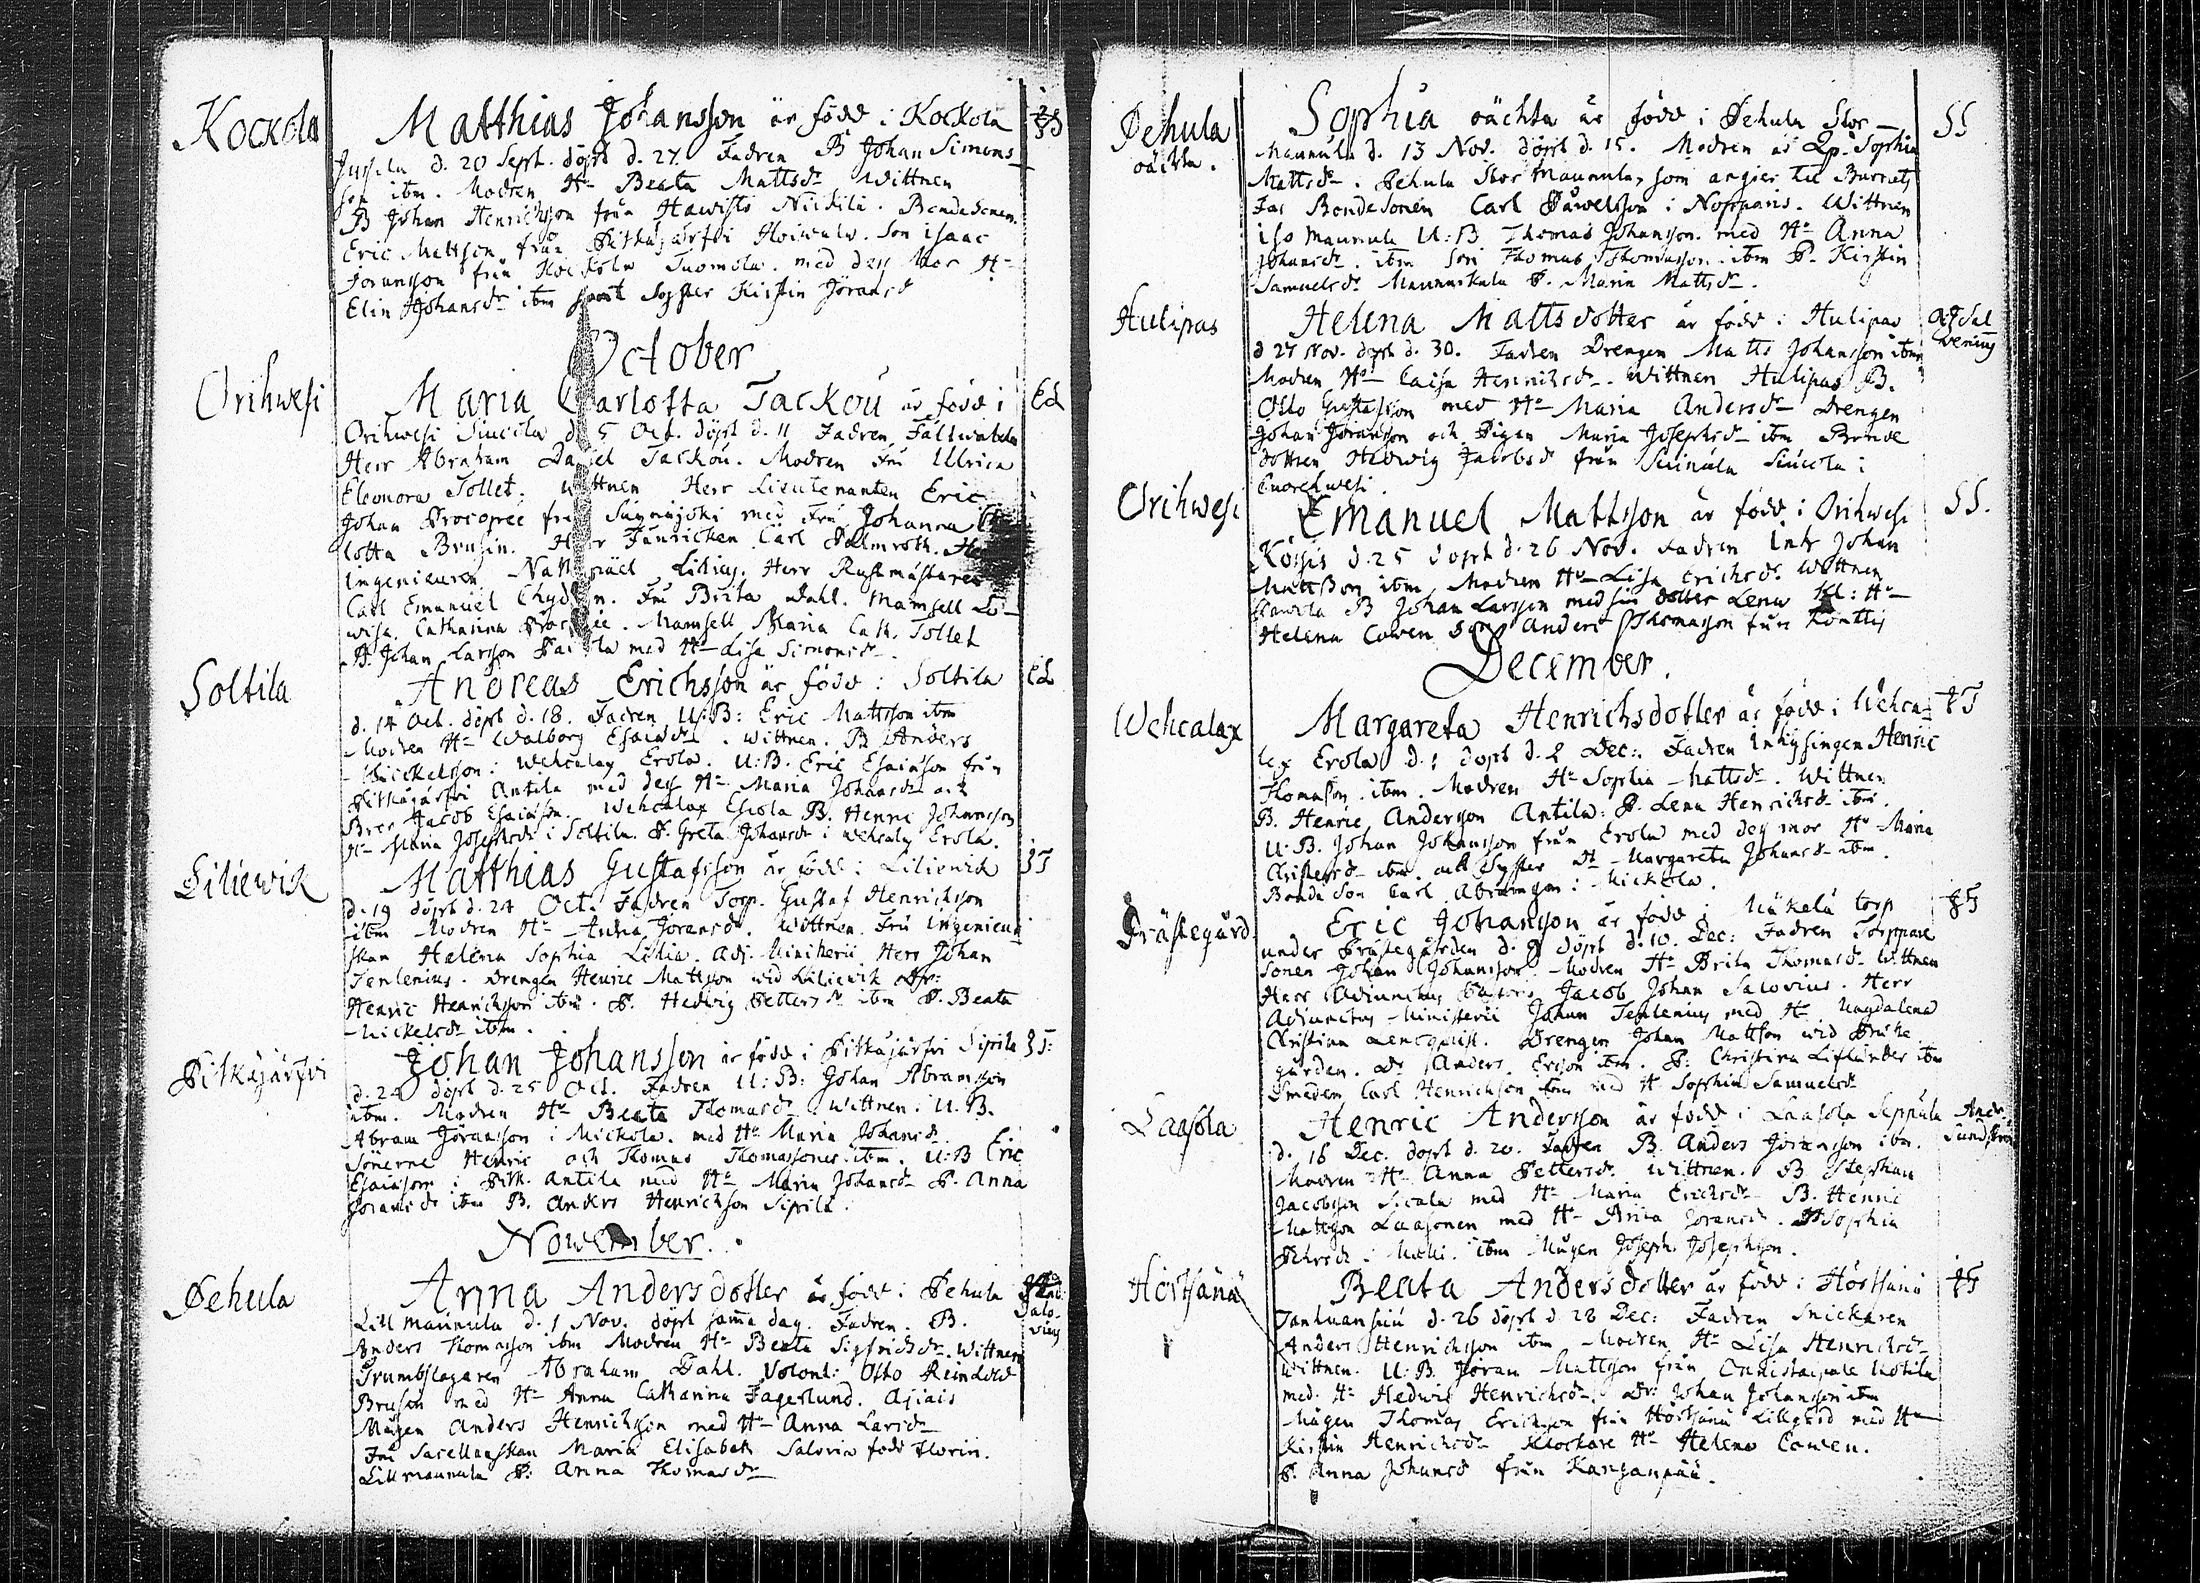 Kockola
Matthias Johansson är född i Kockola
Jussila d. 20 Sept. döpt d. 27. Fadren B Johan Simons
son ibm. Modren H. Beata Mattsdr Wittnen
B Johan Henrichsson från Hawisto Nickilä. Bondesonen
Eric Mattson från Pitkäjärfvi. Son Isaac
Joransson från Kockola Tuomola. med dess Mor H.
Elin Johansdr ibm samt Syster Kirstin Jöransd
October
Orihwesi
Maria Carlotta Tackou är född i Ed
Orihwesi d. 5 Oct. döpt d. 11 Fadren Fältwäbeln
Herr Abraham Daniel Tackou. Modren Fru Ulrica
Eleonora Tollet. Wittnen Herr Lieutenanten Eric
Johan Procopee från Sagnajoki med Fru Johanna
lotta Brusin. Herr Fänricken Carl Palmroth.
Ingenieuren Lilius. Herr Rustmästaren
Carl Emanuel. Fru Birta Dahl. Mamsell Lo
wisa. Catharina. Mamsell Maria Cath. Tollet
B. Johan Larsson med H. Lisa Simonsdr.
Soltila
Andreas Erichsson är född i Soltila Ed
d. 14 Oct. döpt d. 18. Fadren U:B: Eric Mattsson ibm
Modren H. Walborg Esaiædr. Wittnen. B Anders
Mickelsson i Wehcalax Erola. U:B. Eric Esaiasson från
Pitkäjärfvi Antila med dess H. Maria Johansdr och
Bror Jacob Esaiasson. Wehcalax Erola B. Henric Johansson
H. Maria Josephsdr i Soltila. P. Greta Johansdr i Wehcalax Erola.
Liliewik
Matthias Gustafsson är född i Liliewick JT
d. 19 döpt d. 24 Oct. Fadren Torp. Gustaf Henrichsson
ibm Modren H. Anna Joransdr. Wittnen. Fru Ingenieur
skan Helena Sophia Lilia. Adj. Ministerii Herr Johan
Tenlenius. Drengen Henric Mattson wid Liliewik
Henric Henricksson ibm. P. Hedwig Pettersdr ibm P. Beata
Mickelsdr ibm.
Pitkäjärfvi
Johan Johansson är född i Pitkäjärfvi Siprilä
d. 24 döpt d. 25 Oct. Fadren U:B: Johan Abramsson
ibm. Modren H. Beata Thomasdr Wittnen: U.B.
Abram Jöransson i Mickola. med H. Maria Johansdr
Sönerne Henric och Thomas Thomassoner ibm. U:B Eric
Esaiasson i Pitk. Antila med H. Maria Johansdr P. Anna
Joransdr ibm B. Anders Henrichson Siprilä.
November.
Pehula
Anna Andersdotter är född i Pehula
Lill maunula d. 1 Nov. döpt samma dag. Fadren. B.
Anders Thomasson ibm Modren H. Beata Sigfridsdr. Wittnen
Trumbslagaren Abraham Dahl. Volont: Otto Reinhold
Bruson med H. Anna Catharina Fagerlund.
Mågen Anders Henrichsson med H. Anna Larsdr
Fru Sacellanskan Maria Elisabeth Salovia född Florin.
Lill maunula P. Anna Thomasdr
Pehula
oäckta.
Sophia oächta är född i Pehula Stor SS
Maunula d. 13 Nov. döpt d. 15. Modren är Qp. Sophia
Mattsdr. Pehula Stor Maunula, som angier til Barnets
Far Bondesonen Carl Påwelsson i Noppais. Wittnen
Maunula U:B. Thomas Johansson. med H. Anna
Johansdr. ibm Son Thomas Thomasson. ibm P. Kirstin
Samuelsdr Maunula P. Maria Mattsdr.
Hulipas
Helena Mattsdotter är född i Hulipas Af Sal
wenius
d 27 Nov. döpt d. 30. Fadren Drengen Matts Johansson ibm
Modren H. Caisa Henricksdr. Wittnen Hulipas B.
Otto Gustafsson med H. Maria Andersdr Drengen
Johan Joransson och Pigan Maria Josephsdr ibm Bonde
dottren Hedwig Jacobsd från Suinala Siucola i
Orihwesi
Emanuel Mattsson är född i Orihwesi SS.
d. 25 döpt d. 26 Nov. Fadren Inh Johan
Mattsson ibm Modren H. Lisa Erichsdr Wittnen
B Johan Larsson med sin dotter Lena Kl: H.
Helena Cowen Anders Thomasson från Konttis
December.
Wehcalax
Margareta Henrichsdotter är född i Wehca-
lax Erola d. 1 döpt d. 2 Dec:. Fadren Inhysingen Henric
Thomason ibm. Modren H. Sophia Mattsdr. Wittnen
B. Henric Andersson Antila. P. Lena Henrichsdr ibm.
U. B. Johan Johansson från Erola med dess mor H. Maria
ibm. och Syster H. Margareta Johansdr ibm.
Bonda Son Carl Abramson i Mickola.
Prästegård
Eric Johansson är född i Mäkelä torp
under Prästegården d. 9 döpt d. 10. Dec: Fadren Torppare
sonen Johan Johansson. Modren H. Brita Thomasdr Wittnen
Herr Adjunctus Pastoris Jacob Johan Salovius. Herr
Adjunctus Ministerii Johan Tenlenius med H. Magdalena
Christina Lencquist. Drengen Johan Mattson wid Präste
gården. Dr. Anders Ericson ibm. P: Christina Liflander ibm
Smeden Carl Henrichson ibm med H Sophia Samuelsdr
Laasola
Henric Andersson är född i Laasola Seppälä Andr.
Sundström
d. 16 Dec. döpt d. 20. Fadren B. Anders Jöransson ibm.
Modren H. Anna Pettersdr. Wittnen. B Stephan
Jacobsson Sicala med H. Maria Erichsdr B. Henric
Mattsson Laasonen med H. Anna Joransdr. P Sophia
ibm Mågen Joseph Josephson.
Hörtsänä
Beata Andersdotter är född i Hörtsänä
d. 26 döpt d 28 Dec: Fadren Snickaren
Anders Henrichsson ibm Modren H. Lisa Henrichsdr
Wittnen. U:B. Joran Mattsson från
med. H. Hedwic Henrichsdr. Dr: Johan Johansson ibm
Mågen Thomas Ericksson från Hörtsänä Lillgård med H.
Kirstin Henrichsdr Klockare H. Helena Cowen.
P. Anna Johansd från Kanganpää.